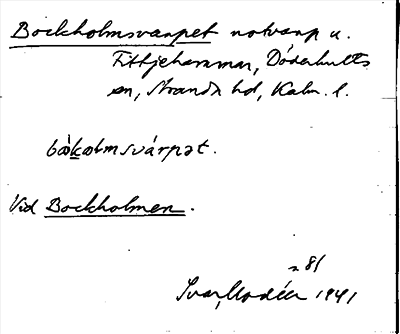 Bockholmsvarpet notvarp u.
Fittjehammar, Döderhults
sn, Stranda hd, Kalm. l.
bòkolmsvárpət.
Vid Bockholmen.
n 81
Ivar Modéer 1941